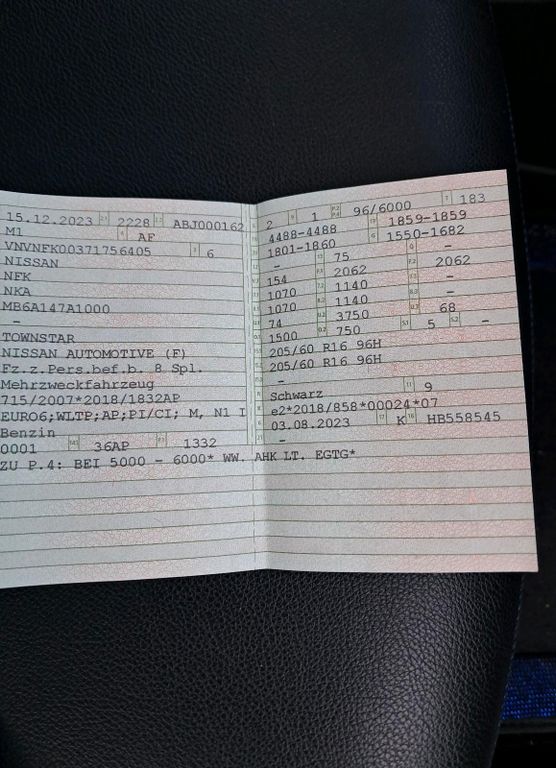 15.12.2023 2228 ABJ000162
M1 AF
VNVNFK00371756405 6
NISSAN
NFK
NKA
MB6A147A1000
-
TOWNSTAR
NISSAN AUTOMOTIVE (F)
Fz.z.Pers.bef.b. 8 Spl.
Mehrzweckfahrzeug
715/2007*2018/1832AP
EURO6;WLTP;AP;PI/CI; M, N1 I
Benzin
0001 36AP 1332
ZU P.4: BEI 5000 - 6000* WW. AHK LT. EGTG*
2 1 96/6000 183
4488-4488 1859-1859
1801-1860 1550-1682
- 75 -
154 2062 2062
1070 1140 -
1070 1140 -
74 3750 68
1500 750 5 -
205/60 R16 96H
205/60 R16 96H
-
Schwarz 9
e2*2018/858*00024*07
03.08.2023 K HB558545
-